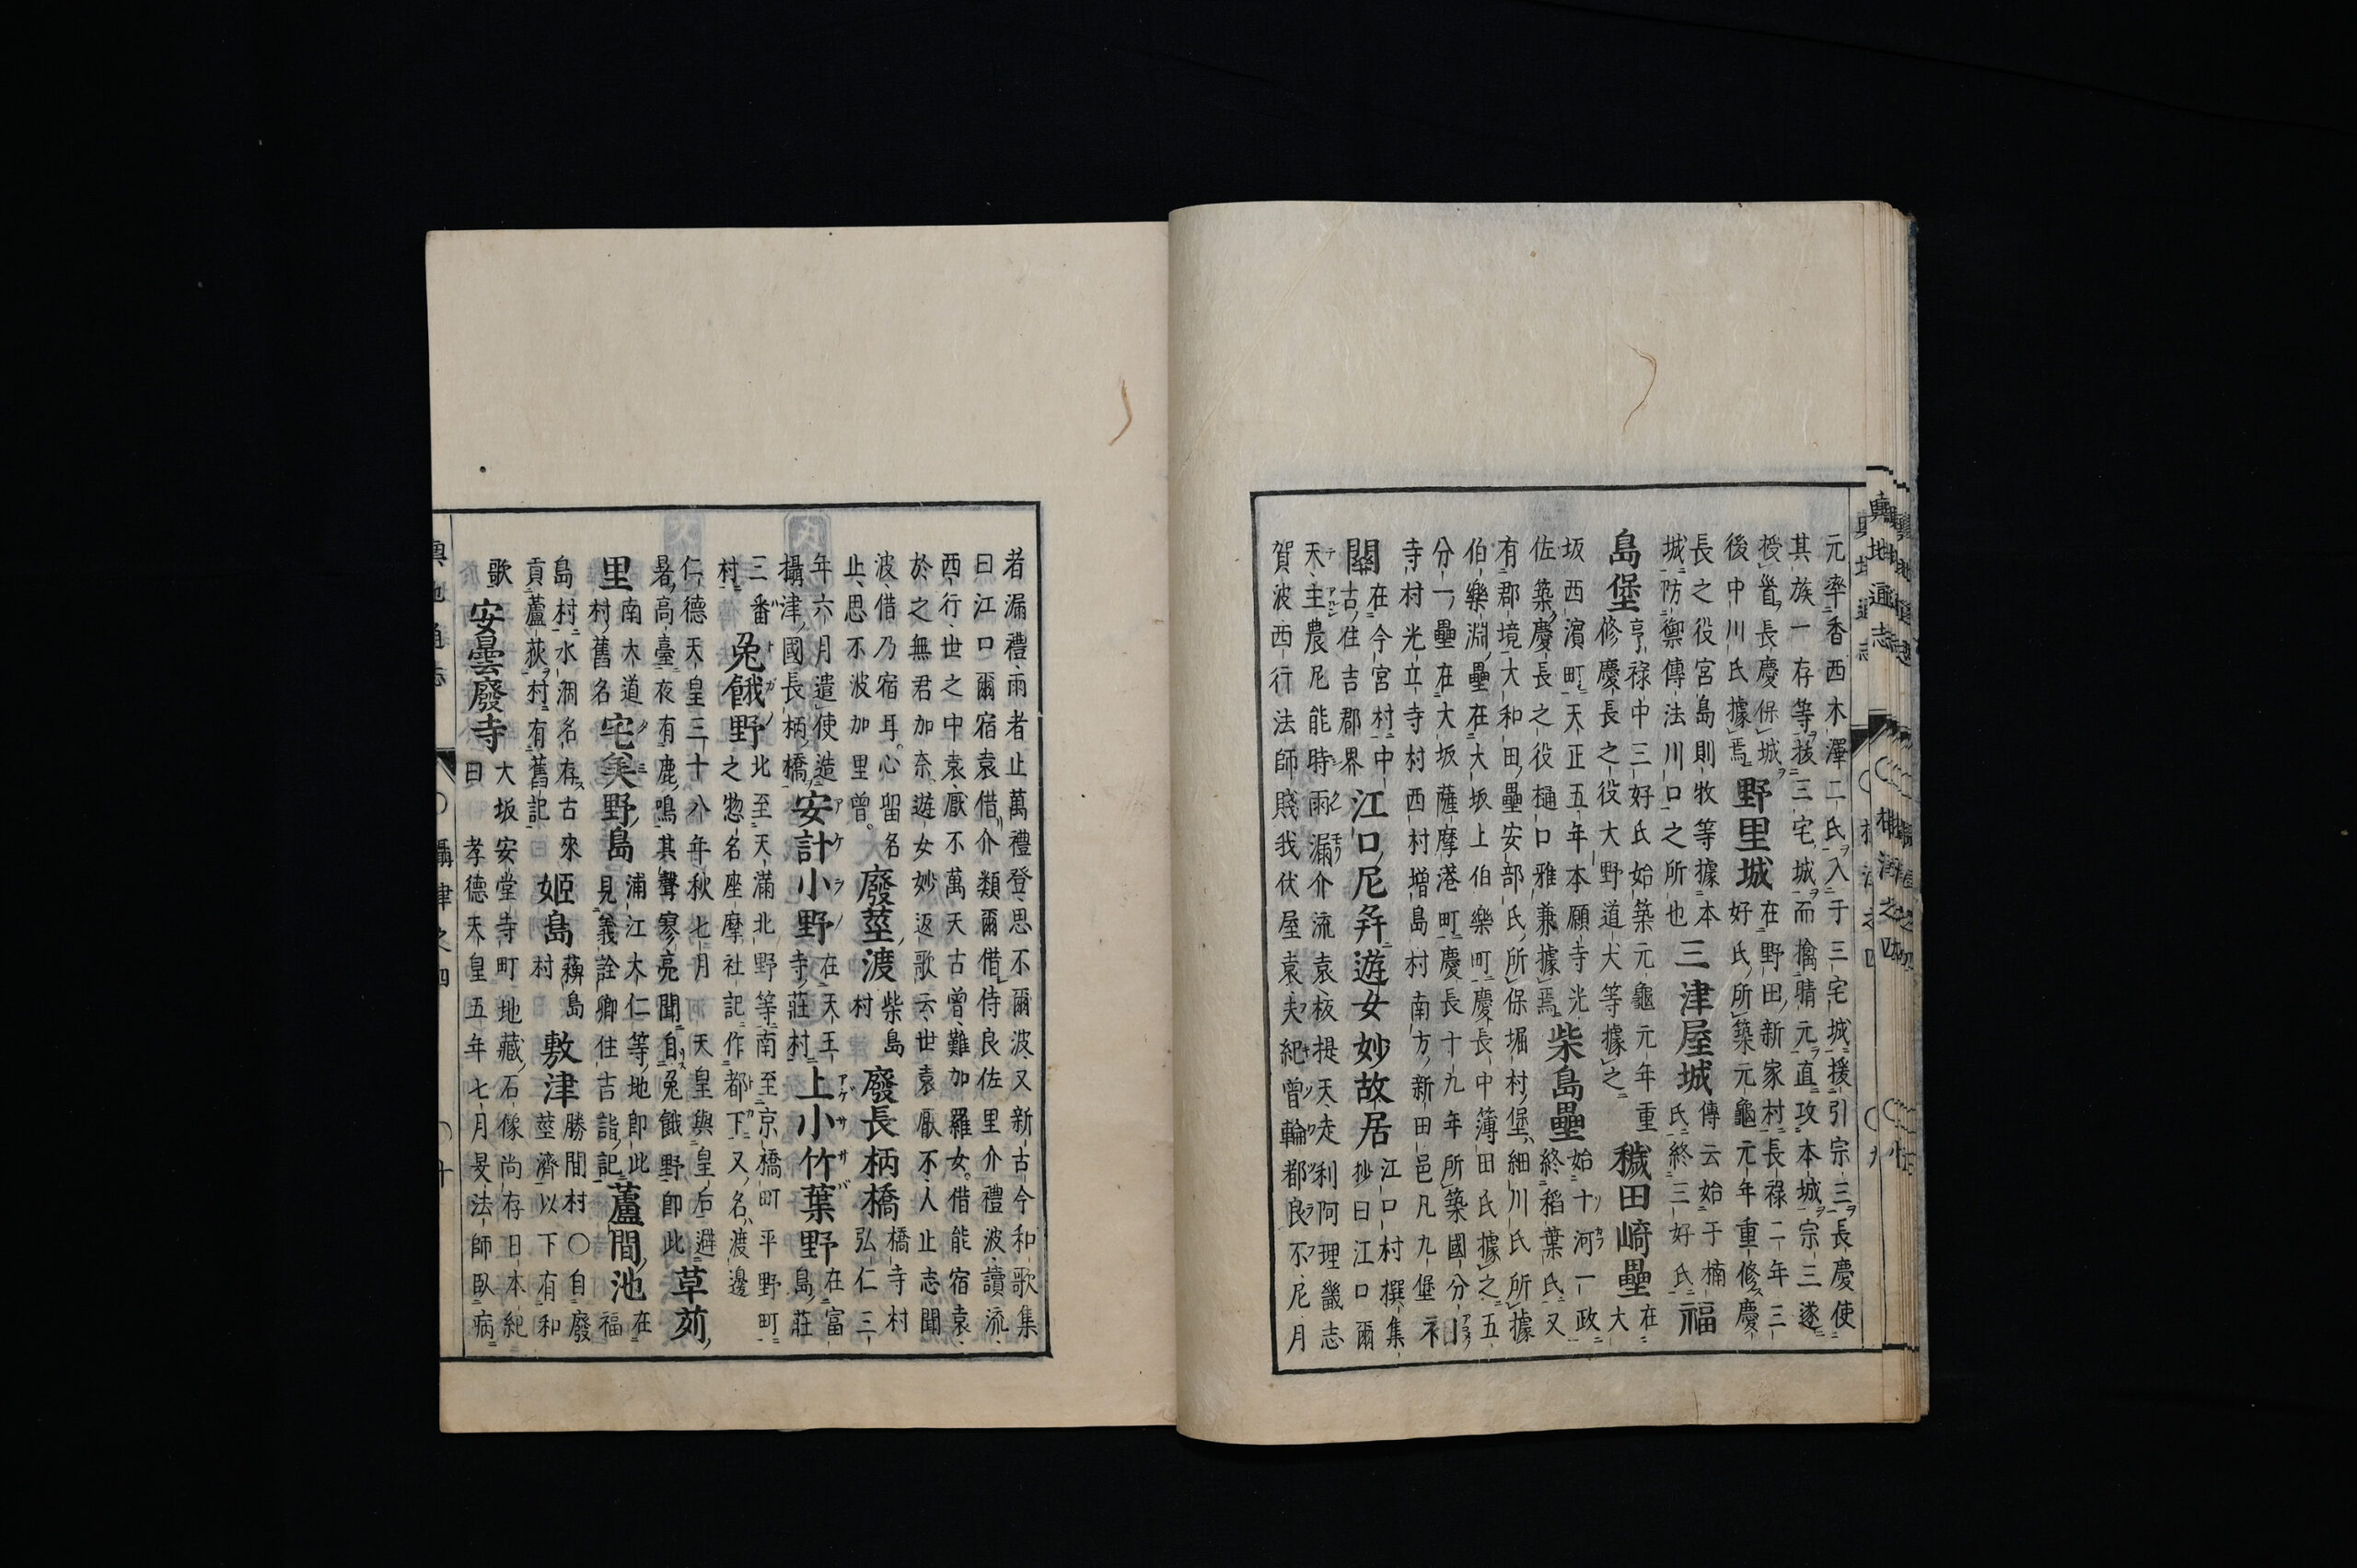 元率香西木澤二氏入于三宅城援引宗三長慶使
其族一存等抜三宅城而擒晴元直攻本城宗三遂
授首長慶保城
後中川氏據焉
野里城
在野田新家村長祿二年三
好氏所築元龜元年重修慶
長之役宮島則牧等據本
城防禦傳法川口之所也
三津屋城
傳云始于楠
氏終三好氏
福
島堡
亨祿中三好氏始築元龜元年重
修慶長之役大野道犬等據之
穢田崎壘
在
大
坂西濱町天正五年本願寺光
佐築慶長之役樋口雅兼據焉
柴島壘
始十河一政
終稻葉氏又
有郡境大和田壘安部氏所保堀村堡細川氏所據
伯樂淵壘在大坂上伯樂町慶長中簿田氏據之五
分一壘在大坂薩摩港町慶長十九年所築國分
寺村光立寺村西村増島村南方新田邑凡九堡
關
在今宮村中
古住吉郡界
江口尼并遊女妙故居
江口村撰集
抄曰江口爾
天主農尼能時雨漏介流袁板提天走利阿理畿志
賀波西行法師賤我伏屋袁夫紀曾輪都良不尼月
者漏禮雨者止萬禮登思不爾波又新古今和歌集
曰江口爾宿袁借介類爾借侍良佐里介禮波讀流
西行世之中袁厭不萬天古曾難加羅女借能宿袁
於之無君加奈遊女妙返歌云世袁厭不人止志聞
波借乃宿耳心留名
止思不波加里曾
廢莖渡
柴島
村
廢長柄橋
橋寺村
弘仁三
年六月遣使造
攝津國長柄橋
安計小野
在天王
寺莊村
上小竹葉野
在富
島莊
三番
村
兎餓野
北至天滿北野等南至京橋町平野町
之惣名座摩社記作都下又名渡邊
仁德天皇三十八年秋七月天皇與皇后避
暑高臺夜有鹿鳴其聲寥亮聞自兎餓野卽此
草苅
里
南大道
村舊名
宅矣野島
浦江大仁等地卽此
見義詮卿住吉詣記
蘆間池
在
福
島村水涸名存古來
貢蘆荻村有舊記
姬島
薭島
村
敷津
勝間村〇自廢
莖濟以下有和
歌
安曇廢寺
大坂安堂寺町地藏石像尚存日本紀
曰孝德天皇五年七月旻法師臥病